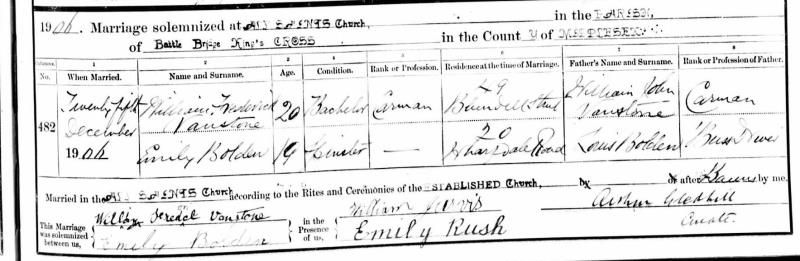 1906. Marriage solemnized at All Saints Church, in the PARISH,
of Battle Bridge King's CROSS in the County of MIDDLESEX
Columns. 1 2 3 4 5 6 7 8
No. When Married. Name and Surname. Age. Condition. Rank or Profession. Residence at the time of Marriage. Father's Name and Surname. Rank or Profession of Father.
482 Twenty fifth December 1906 William Frederick Vanstone 20 Bachelor Carman 29 Street William John Vanstone Carman
Emily Bolden 19 Spinster — 20 Wharfdale Road Louis Bolden Buss Driver
Married in the All SAINTS Church according to the Rites and Ceremonies of the ESTABLISHED Church, by or after Banns by me,
This Marriage was solemnized between us, William Vanstone
Emily Bolden
in the Presence of us, William
Emily Rush
Arthur Gledhill
Curate.